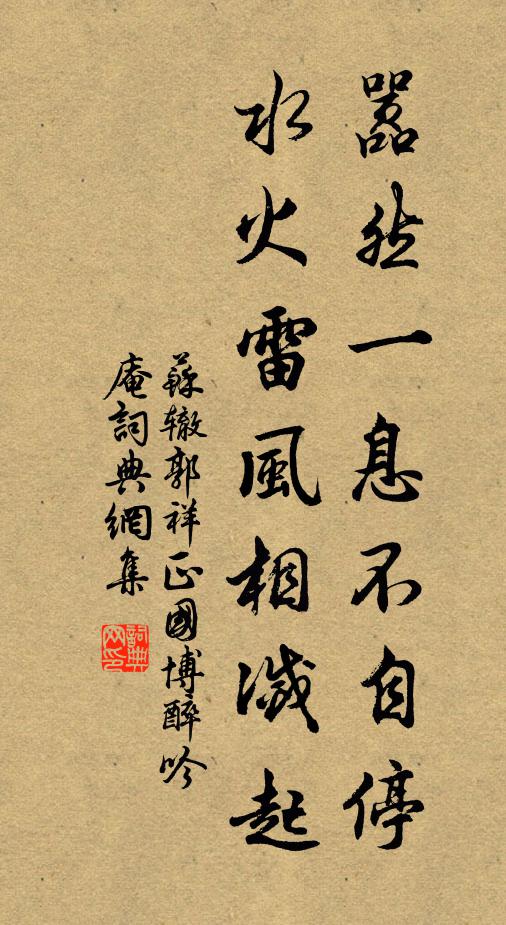 囂然一息不自停
水火雷風相滅起
蘇轍郭祥正國博醉吟
庵詞典網集
詞典
网印